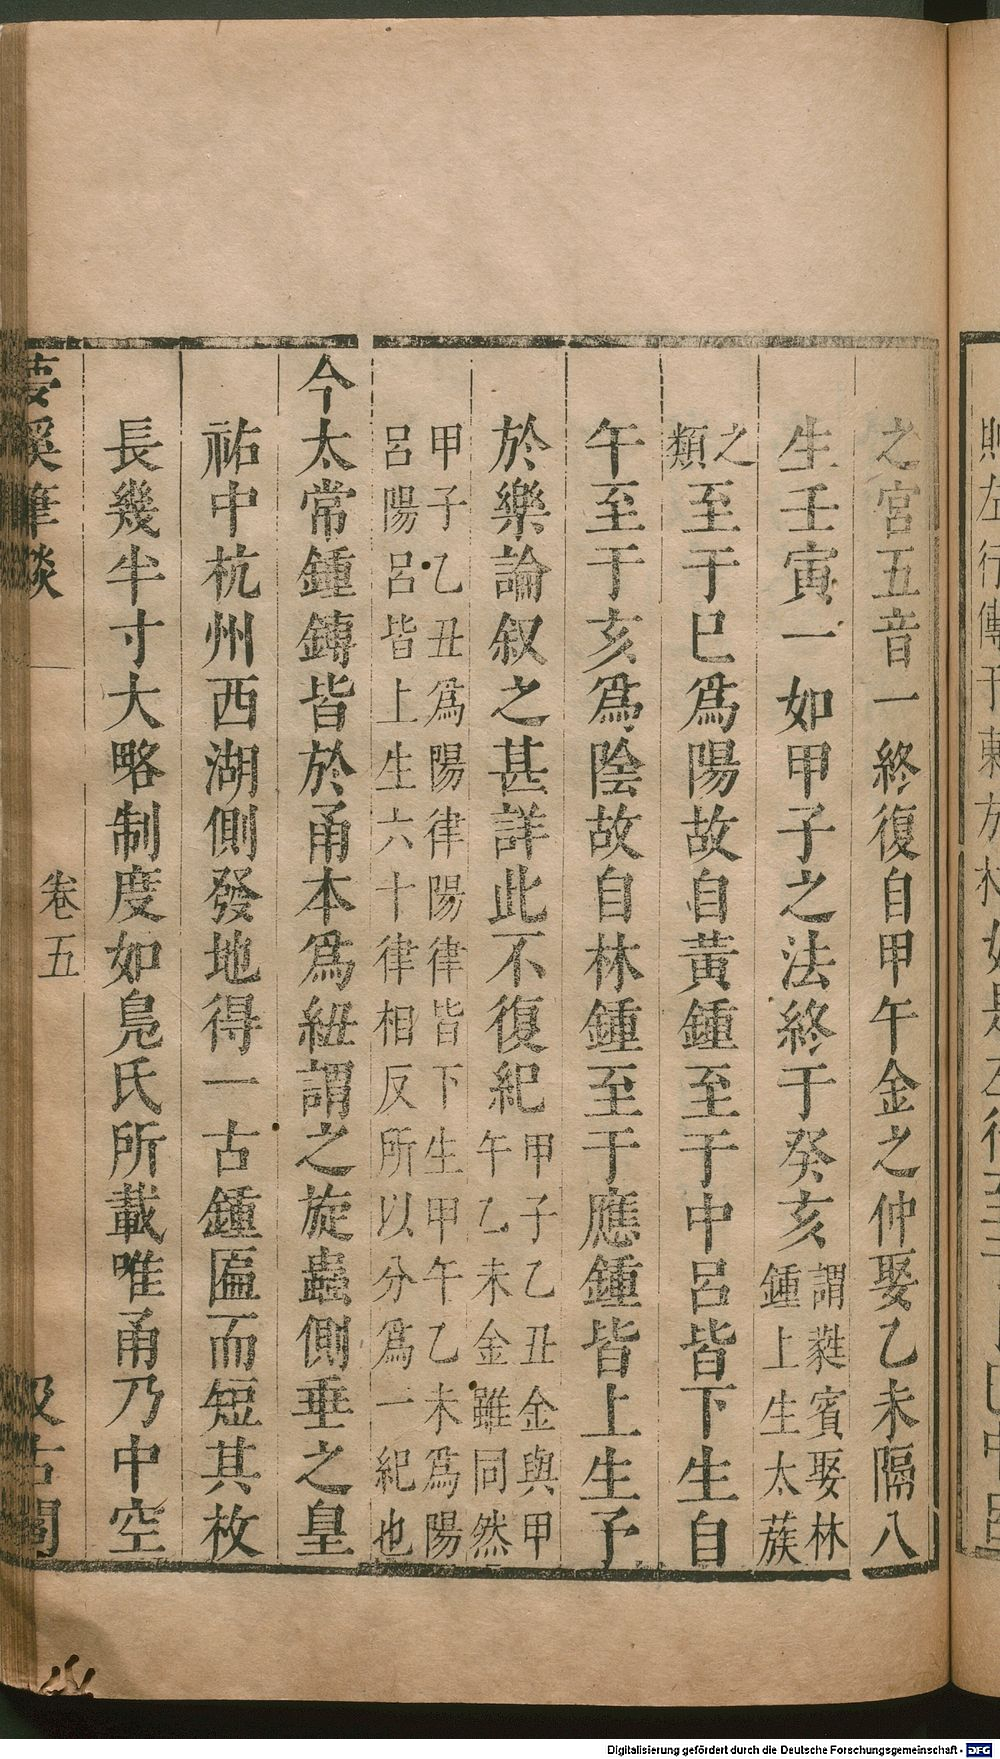 之宮五音一終復自甲午金之仲娶乙未隔八
生壬寅一如甲子之法終于癸亥謂蕤賓娶林
鍾上生太蔟
之
類至于巳爲陽故自黃鍾至于中呂皆下生自
午至于亥爲陰故自林鍾至于應鍾皆上生予
於樂論叙之甚詳此不復紀甲子乙丑金與甲
午乙未金雖同然
甲子乙丑爲陽律陽律皆下生甲午乙未爲陽
呂陽呂皆上生六十律相反所以分爲一紀也
今太常鍾鎛皆於甬本爲紐謂之旋蟲側垂之皇
祐中杭州西湖側發地得一古鍾匾而短其枚
長幾半寸大略制度如鳧氏所載唯甬乃中空
夢溪筆談
卷五
汲古閣
Digitalisierung gefördert durch die Deutsche Forschungsgemeinschaft - DFG